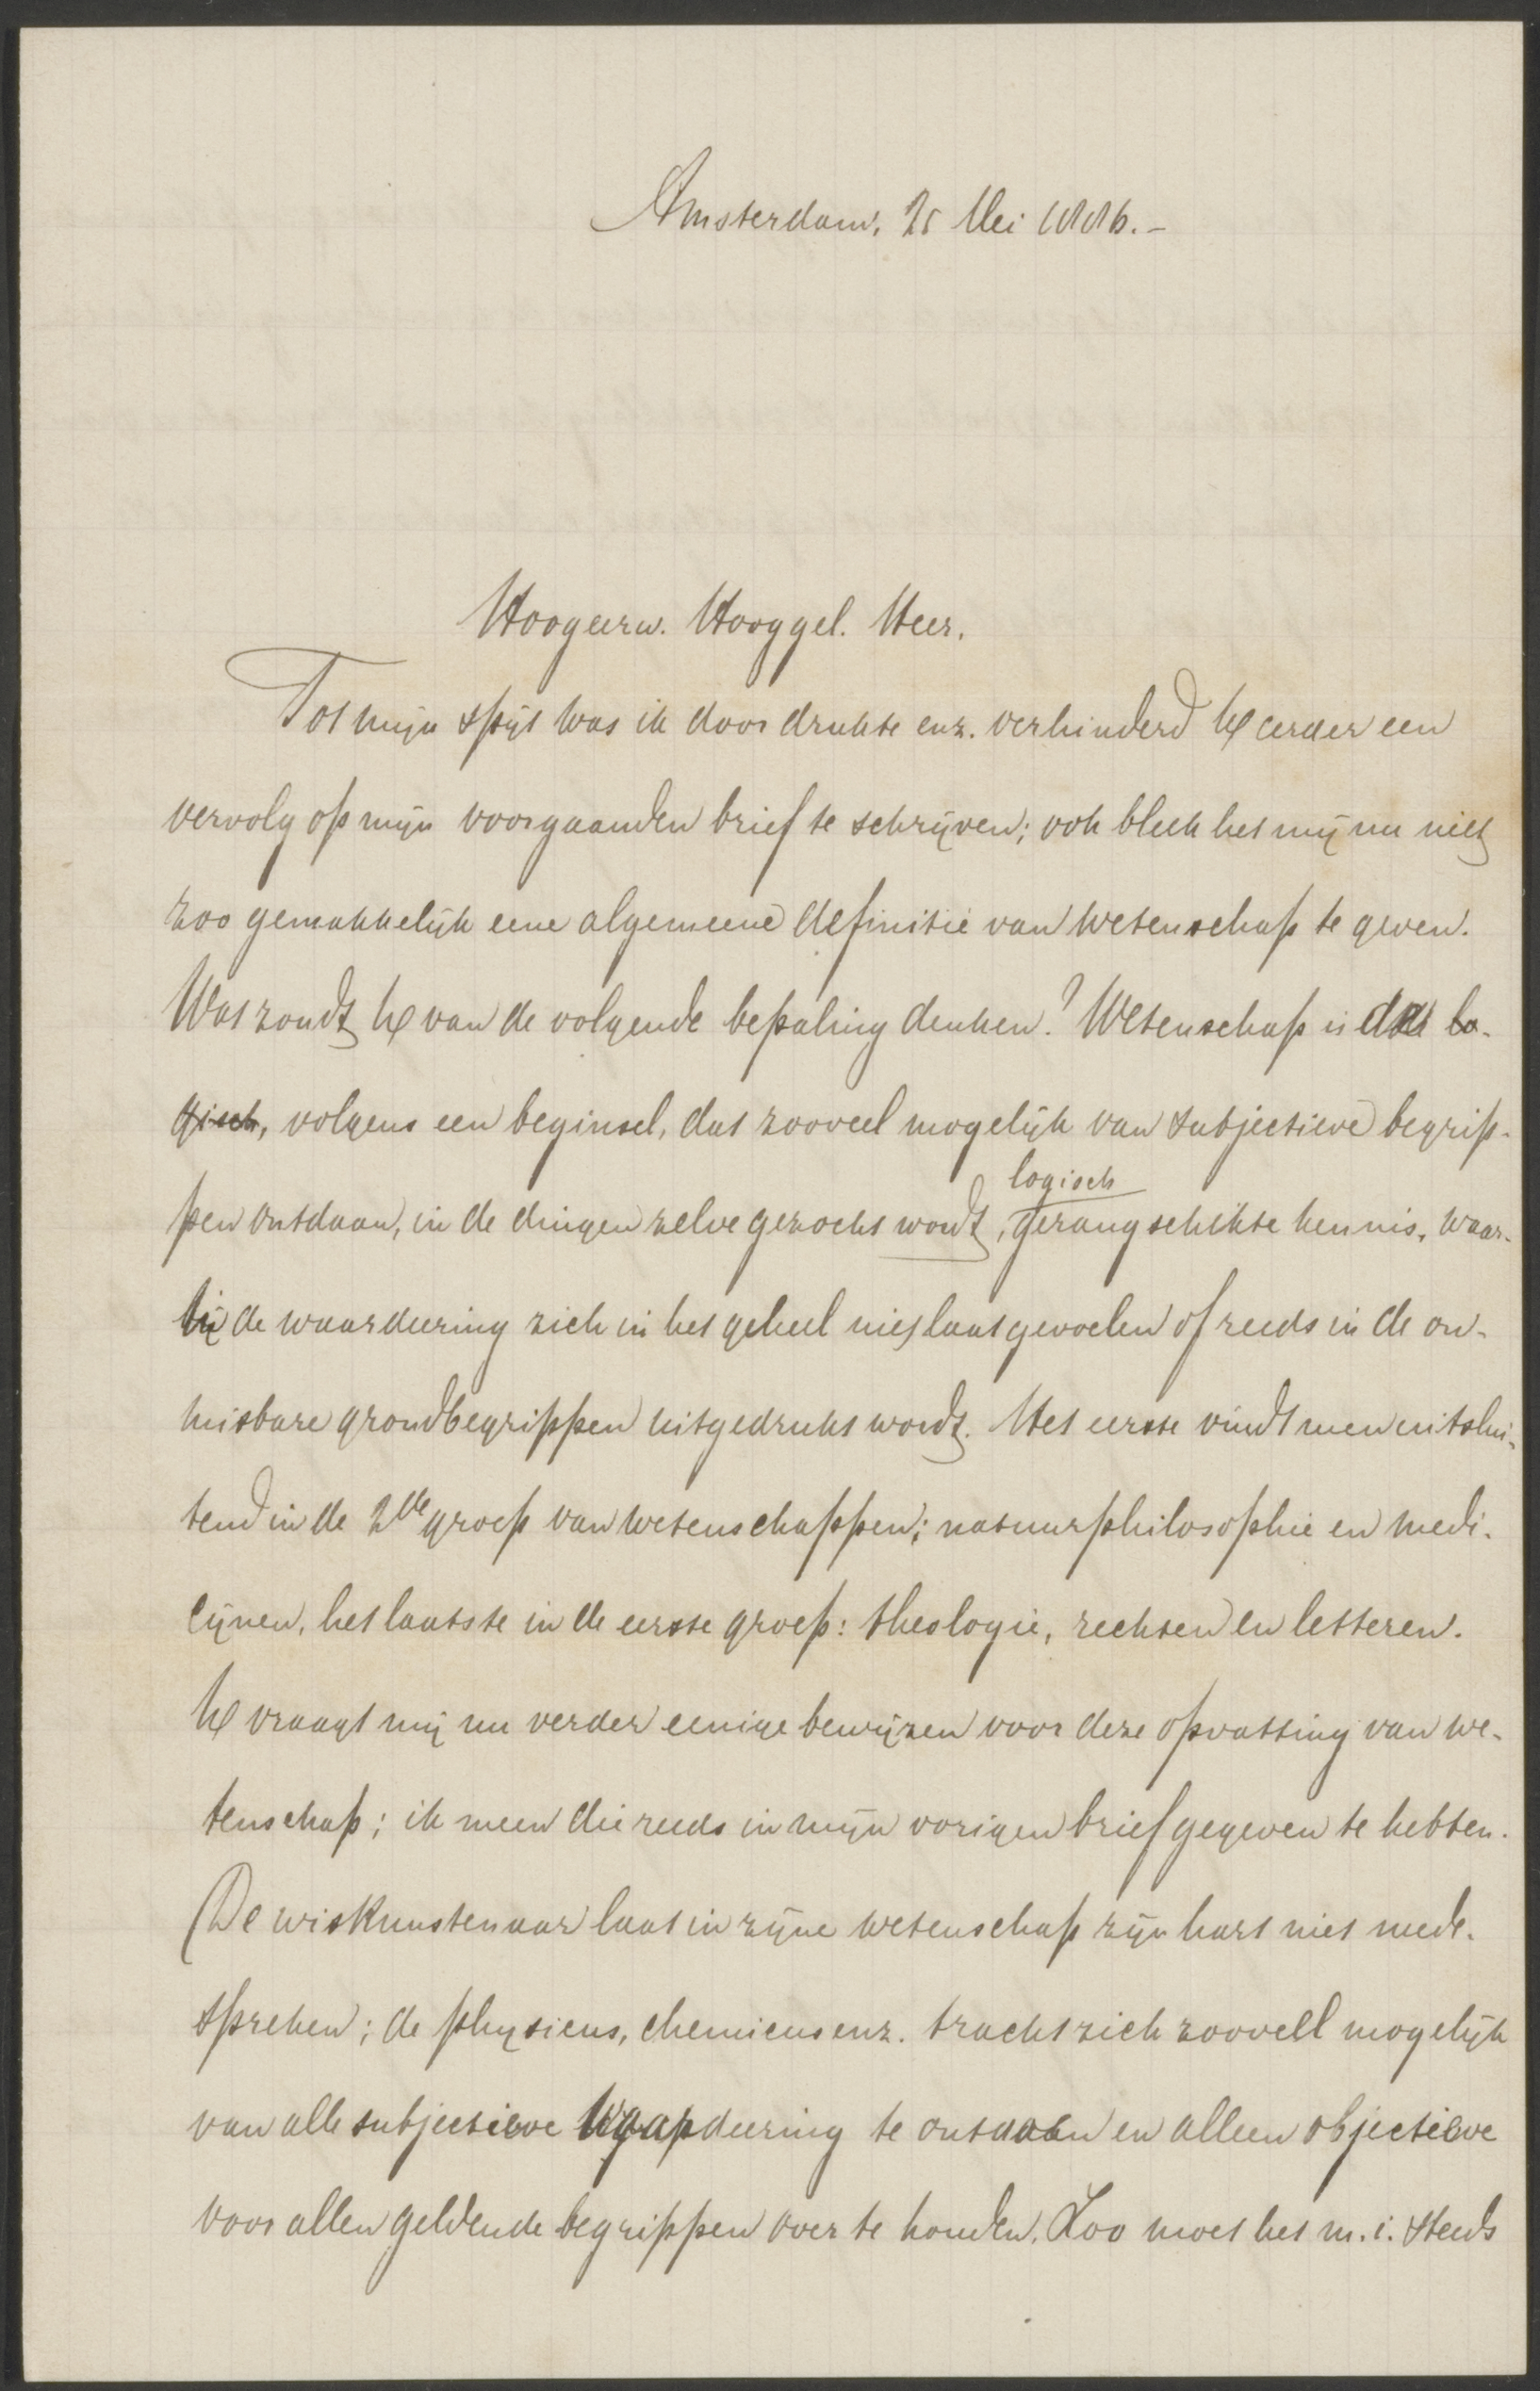 Amsterdam, 25 Mei 1886.-
Hoogeerw. Hooggel. Heer.
Tot mijn spijt was ik door drukte enz. verhinderd U eerder een
vervolg op mijn voorgaanden brief te schrijven; ook bleek het mij nu niet
zoo gemakkelijk eene algemeene definitie van wetenschap te geven.
Wat zoudt U van de volgende bepaling denken? Wetenschap is de lo-
gisch, volgens een beginsel, dat zooveel mogelijk van subjectieve begrip-
logisch
pen ontdaan, in de dingen zelve gezocht wordt, gerangschikte kennis, waar-
bij de waardeering zich in het geheel niet laat gevoelen of reeds in de on-
misbare grondbegrippen uitgedrukt wordt. Het eerste vindt men uitslui-
tend in de 2de groep van wetenschappen; natuurphilosophie en medi-
cijnen, het laatste in de eerste groep: theologie, rechten en letteren.
U vraagt mij nu verder eenige bewijzen voor deze opvatting van we-
tenschap; ik meen die reeds in mijn vorigen brief gegeven te hebben.
De wiskunstenaar laat in zijne wetenschap zijn hart niet mede-
spreken; de physicus, chemicus enz. tracht zich zooveel mogelijk
van alle subjectieve waardeering te ontdoen en alleen objectieve
voor allen geldende begrippen over te houden. Zoo moet het m.i. steeds